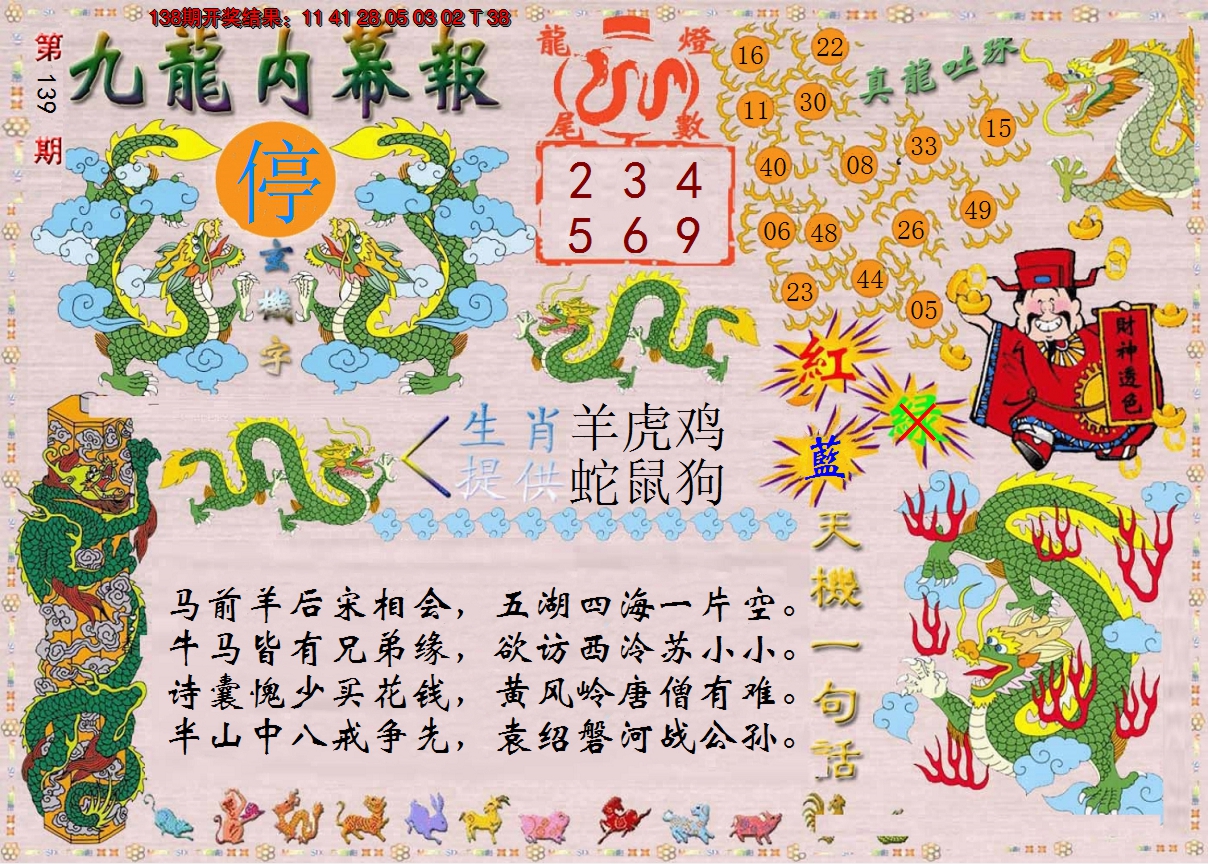 138期开奖结果：11 41 28 05 03 02 T 38
第139期
九龍内幕報
停
玄機字
龍燈尾數
2 3 4
5 6 9
真龍吐珠
16 22
11 30
15
33
40 08
49
06 48 26
44
23
05
財神透色
紅
绿
藍
生肖 羊虎鸡
提供 蛇鼠狗
天機一句話
马前羊后宋相会，五湖四海一片空。
牛马皆有兄弟缘，欲访西泠苏小小。
诗囊愧少买花钱，黄风岭唐僧有难。
半山中八戒争先，袁绍磐河战公孙。